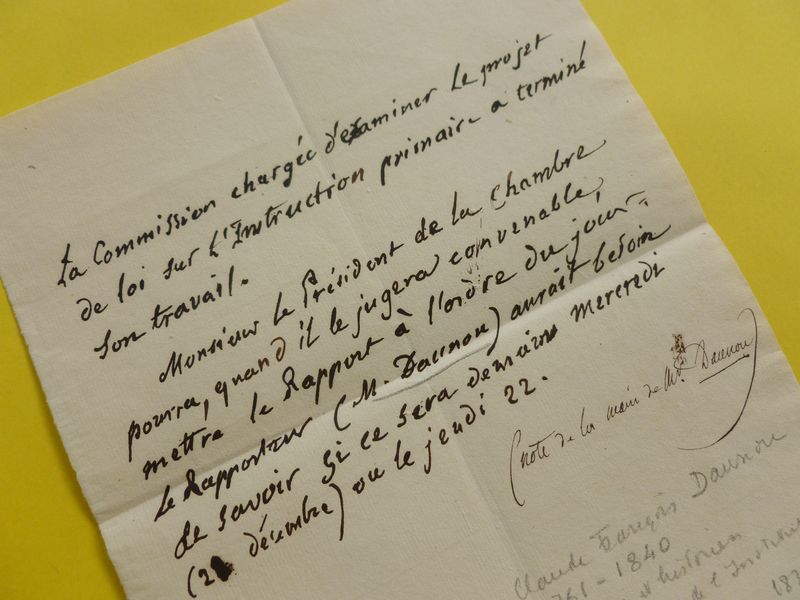 La Commission chargée d'examiner le projet
de loi sur l'Instruction primaire a terminé
son travail.
Monsieur le Président de la Chambre
pourra, quand il le jugera convenable,
mettre le Rapport à l'ordre du jour-
le Rapporteur (M. Daunou) aurait besoin
de savoir si ce sera demain mercredi
(21 décembre) ou le jeudi 22.
(note de la main de Mr. Daunou)
Claude François Daunou
1761 - 1840
et historien
de l'Institut